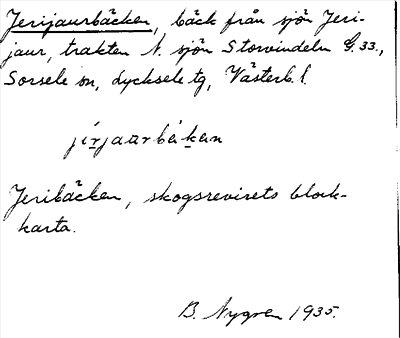 Jerijaurbäcken, bäck från sjön Jeri-
jaur, trakten N. sjön Storvindeln G. 33.,
Sorsele sn, Lycksele tg, Västerb. l.
jirjaarbäken
Jeribäcken, skogsrevirets block-
karta.
B. Nygren 1935.